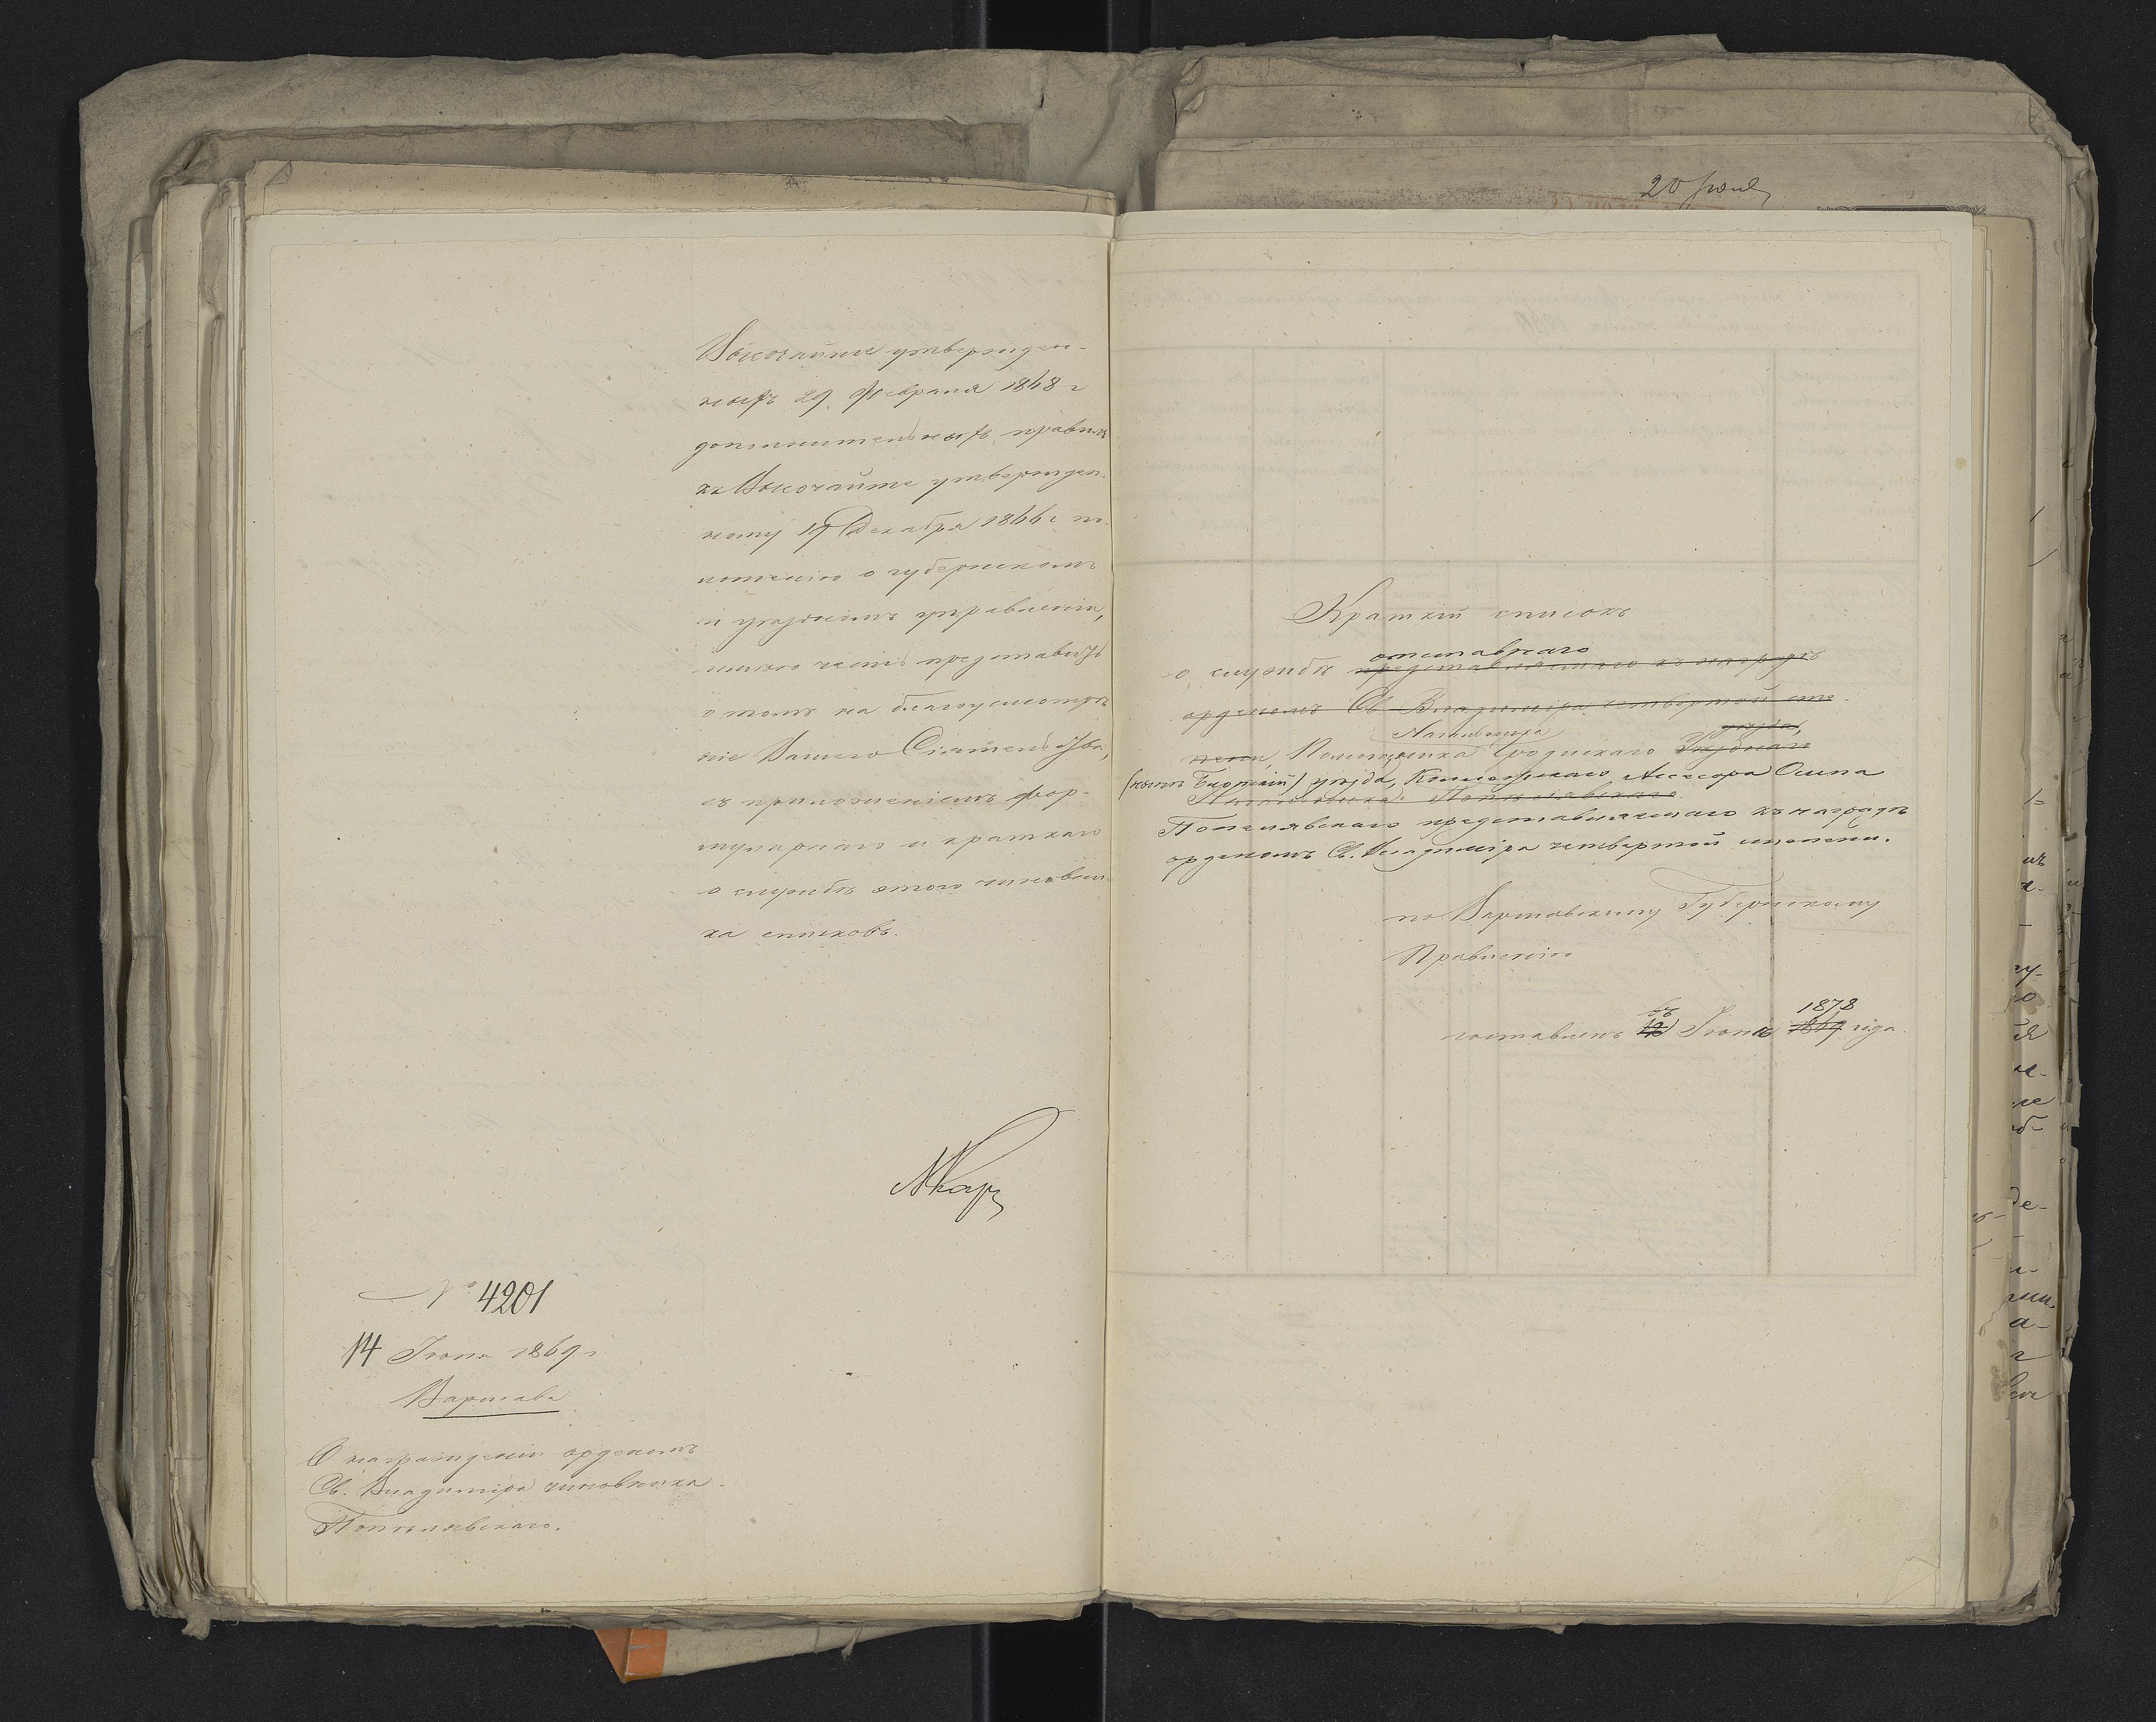 20 Июня
Высочайше утвержден-
ныхъ 29 Февраля 1868 г
дополнительныхъ правилъ
къ Высочайше утвержден-
ному 19 Декабря 1866 г по
ложенію о губернскомъ
и уѣздномъ управленіи,
имѣю честь представить
о томъ на благоусмотрѣ
ніе Вашего Сіятельства,
съ приложеніемъ фор-
мулярнаго и краткаго
о службѣ этого чиновни
ка списковъ.
№ 4201
14 Іюня 1869 г
Варшава
О награжденіи орденомъ
Св. Владиміра чиновника
Попелявскаго.
Краткій списокъ
отставнаго
о службѣ представляемаго къ наградѣ
орденомъ Св. Владиміра четвертой сте
Начальника
уѣзда,
пени, Помощника Гродискаго Уѣзднаго
(нынѣ Блонскій) уѣзда, Коллежскаго Ассесора Осипа
Начальника Попелявскаго
Попелявскаго представляемаго къ наградѣ
орденомъ Св. Владиміра четвертой степени.
по Варшавскому Губернскому
Правленію
въ
1878
составленъ Іюнѣ 1869 года.